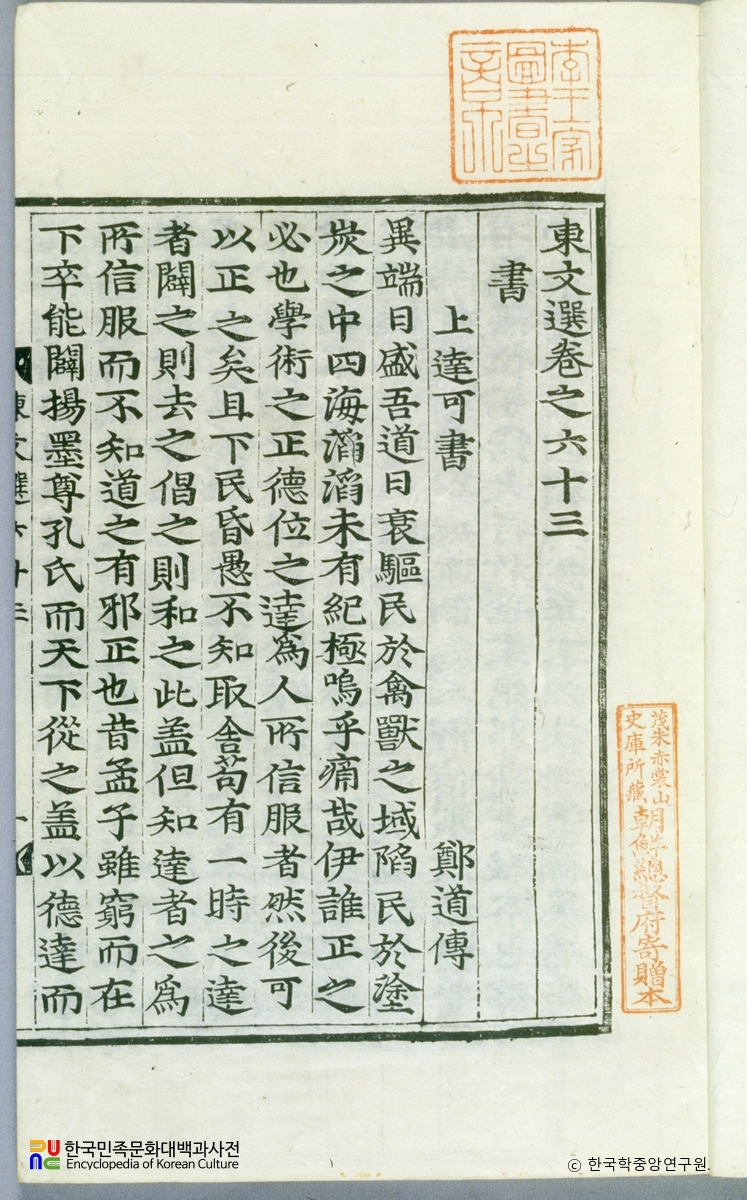 東文選卷之六十三
書
上達可書 鄭道傳
異端日盛吾道日衰驅民於禽獸之域陷民於塗
炭之中四海滔滔未有紀極嗚乎痛哉伊誰正之
必也學術之正德位之達爲人所信服者然後可
以正之矣且下民昏愚不知取舍苟有一時之達
者闢之則去之倡之則和之此盖但知達者之爲
所信服而不知道之有邪正也昔孟子雖窮而在
下卒能闢揚墨尊孔氏而天下從之盖以德達而
東文選六十三 一
李王家
圖書之
章
茂朱赤裳山
史庫所藏
朝鮮總督府寄贈本
한국민족문화대백과사전
Encyclopedia of Korean Culture
© 한국학중앙연구원